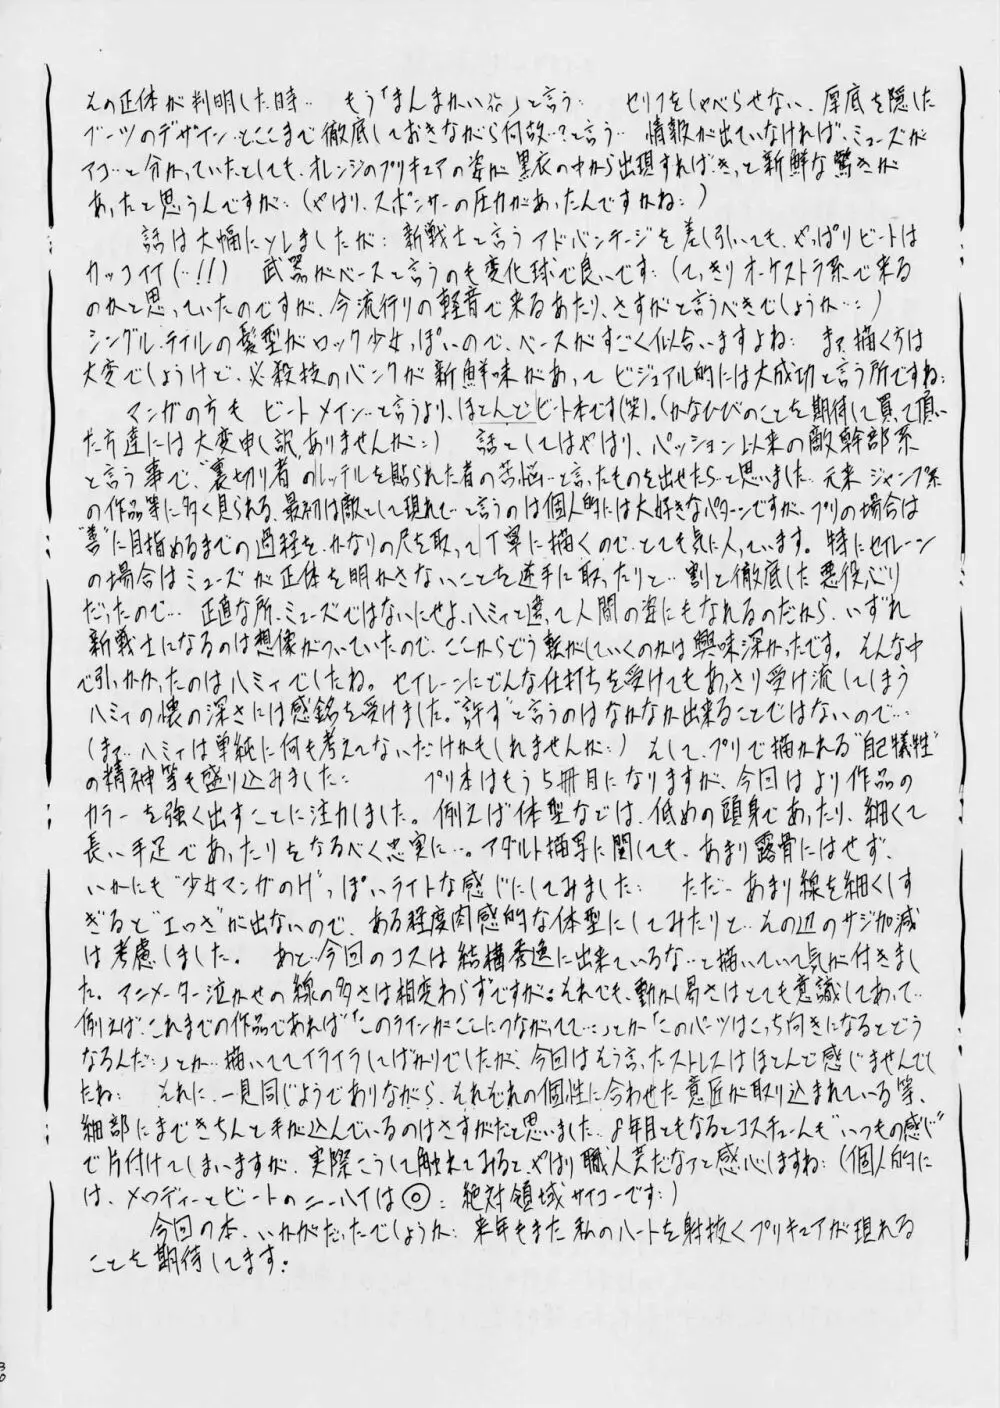 その正体が判明した時… もう「まんまかい!!」と言う… セリフをしゃべらせない、厚底を隠した
ブーツのデザイン…とここまで徹底しておきながら何故…?と言う… 情報が出ていなければ、ミューズが
アコ…と分かっていたとしても、オレンジのプリキュアの姿が黒衣の中から出現すればきっと新鮮な驚きが
あったと思うんですが…(やはり、スポンサーの圧力があったんですかね…)
話は大幅にソレましたが… 新戦士と言うアドバンテージを差し引いても、やっぱりビートは
カッコイイ(…!!) 武器がベースと言うのも変化球で良いです…(てっきりオーケストラ系で来る
のかと思っていたのですが、今流行りの軽音で来るあたり、さすがと言うべきでしょうか…)
シングルテイルの髪型がロック少女っぽいので、ベースがすごく似合いますよね… まぁ描く方は
大変でしょうけど、必殺技のバンクが新鮮味があってビジュアル的には大成功と言う所ですね…
マンガの方もビートメイン…と言うより、ほとんどビート本です(笑)。(かなひびのことを期待して買って頂い
た方達には大変申し訳ありませんが…) 話としてはやはり、パッション以来の敵幹部系
と言う事で、“裏切り者”のレッテルを貼られた者の苦悩…と言ったものを出せたら…と思いました… 元来ジャンプ系
の作品等に多く見られる、最初は敵として現れて…と言うのは個人的には大好きなパターンですが、プリの場合は
“善”に目指めるまでの過程を、かなりの尺を取って丁寧に描くので、とても気に入っています。特にセイレーン
の場合はミューズが正体を明かさないことを逆手に取ったりと… 割と徹底した悪役ぶり
だったので… 正直な所、ミューズではないにせよ、ハミィと違って人間の姿にもなれるのだから、いずれ
新戦士になるのは想像がついていたので、ここからどう転がしていくのかは興味深かったです。そんな中
で引っかかったのはハミィでしたね。セイレーンにどんな仕打ちを受けてもあっさり受け流してしまう
ハミィの懐の深さには感銘を受けました。“許す”と言うのはなかなか出来ることではないので…
(まぁ…ハミィは単純に何も考えてないだけかもしれませんが…) そして、プリで描かれる“自己犠牲”
の精神等も盛り込みました… プリ本はもう5冊目になりますが、今回はより作品の
カラーを強く出すことに注力しました。例えば体型などは、低めの頭身であったり、細くて
長い手足であったりをなるべく忠実に…。アダルト描写に関しても、あまり露骨にはせず、
いかにも“少女マンガのH”っぽいライトな感じにしてみました… ただ…あまり線を細くしす
ぎると“エロさ”が出ないので、ある程度肉感的な体型にしてみたりと…その辺のサジ加減
は考慮しました。 あと…今回のコスは結構秀逸に出来ているな…と描いていて気が付きまし
た。アニメーター泣かせの線の多さは相変わらずですが…それでも、動かし易さはとても意識してあって…
例えば、これまでの作品であれば「このラインがここにつながってて…」とか「このパーツはこっち向きになるとどう
なるんだ…」とか…描いててイライラしてばかりでしたが、今回はそう言ったストレスはほとんど感じませんでし
たね… それに、一見同じようでありながら、それぞれの個性に合わせた意匠が取り込まれている等、
細部にまできちんと手が込んでいるのはさすがだと思いました… 8年目ともなるとコスチュームも“いつもの感じ”
で片付けてしまいますが、実際こうして触れてみると、やはり職人芸だなァと感心しますね…(個人的に
は、メロディーとビートのニーハイは◎… 絶対領域サイコーです…)
今回の本、いかがだったでしょうか… 来年もまた私のハートを射抜くプリキュアが現れる
ことを期待してます。
30